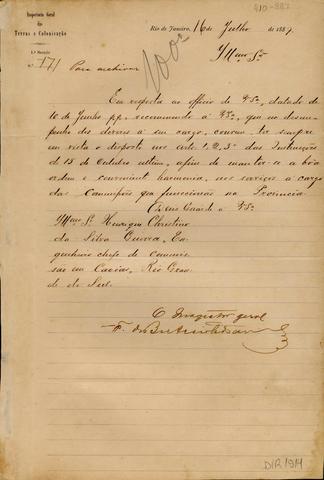 410-887
Inspectoria Geral
das
Terras e Colonisação
Rio de Janeiro, 16 de Julho de 1887
2.ª Secção
N.º 171
Para archivar
Illmo Sr.
Em resposta ao officio de V.Sª, datado de
10 de Junho pp, recommendo a V.Sª, que no desem-
penho dos deveres a seu cargo, convem ter sempre
em vista o disposto nos arts. 1, 2, 3º das Instrucções
de 15 de Outubro ultimo, afim de manter-se a boa
ordem e conveniente harmonia, nos serviços a cargo
das Commissões que funccionão na Provincia
Deus Guarde a V.Sª
Illmo Sr. Henrique Christino
da Silva Guerra, En-
genheiro chefe da commis-
são em Caxias, Rio Gran-
de do Sul.
O Inspector geral
F. de B.
DIR 1914